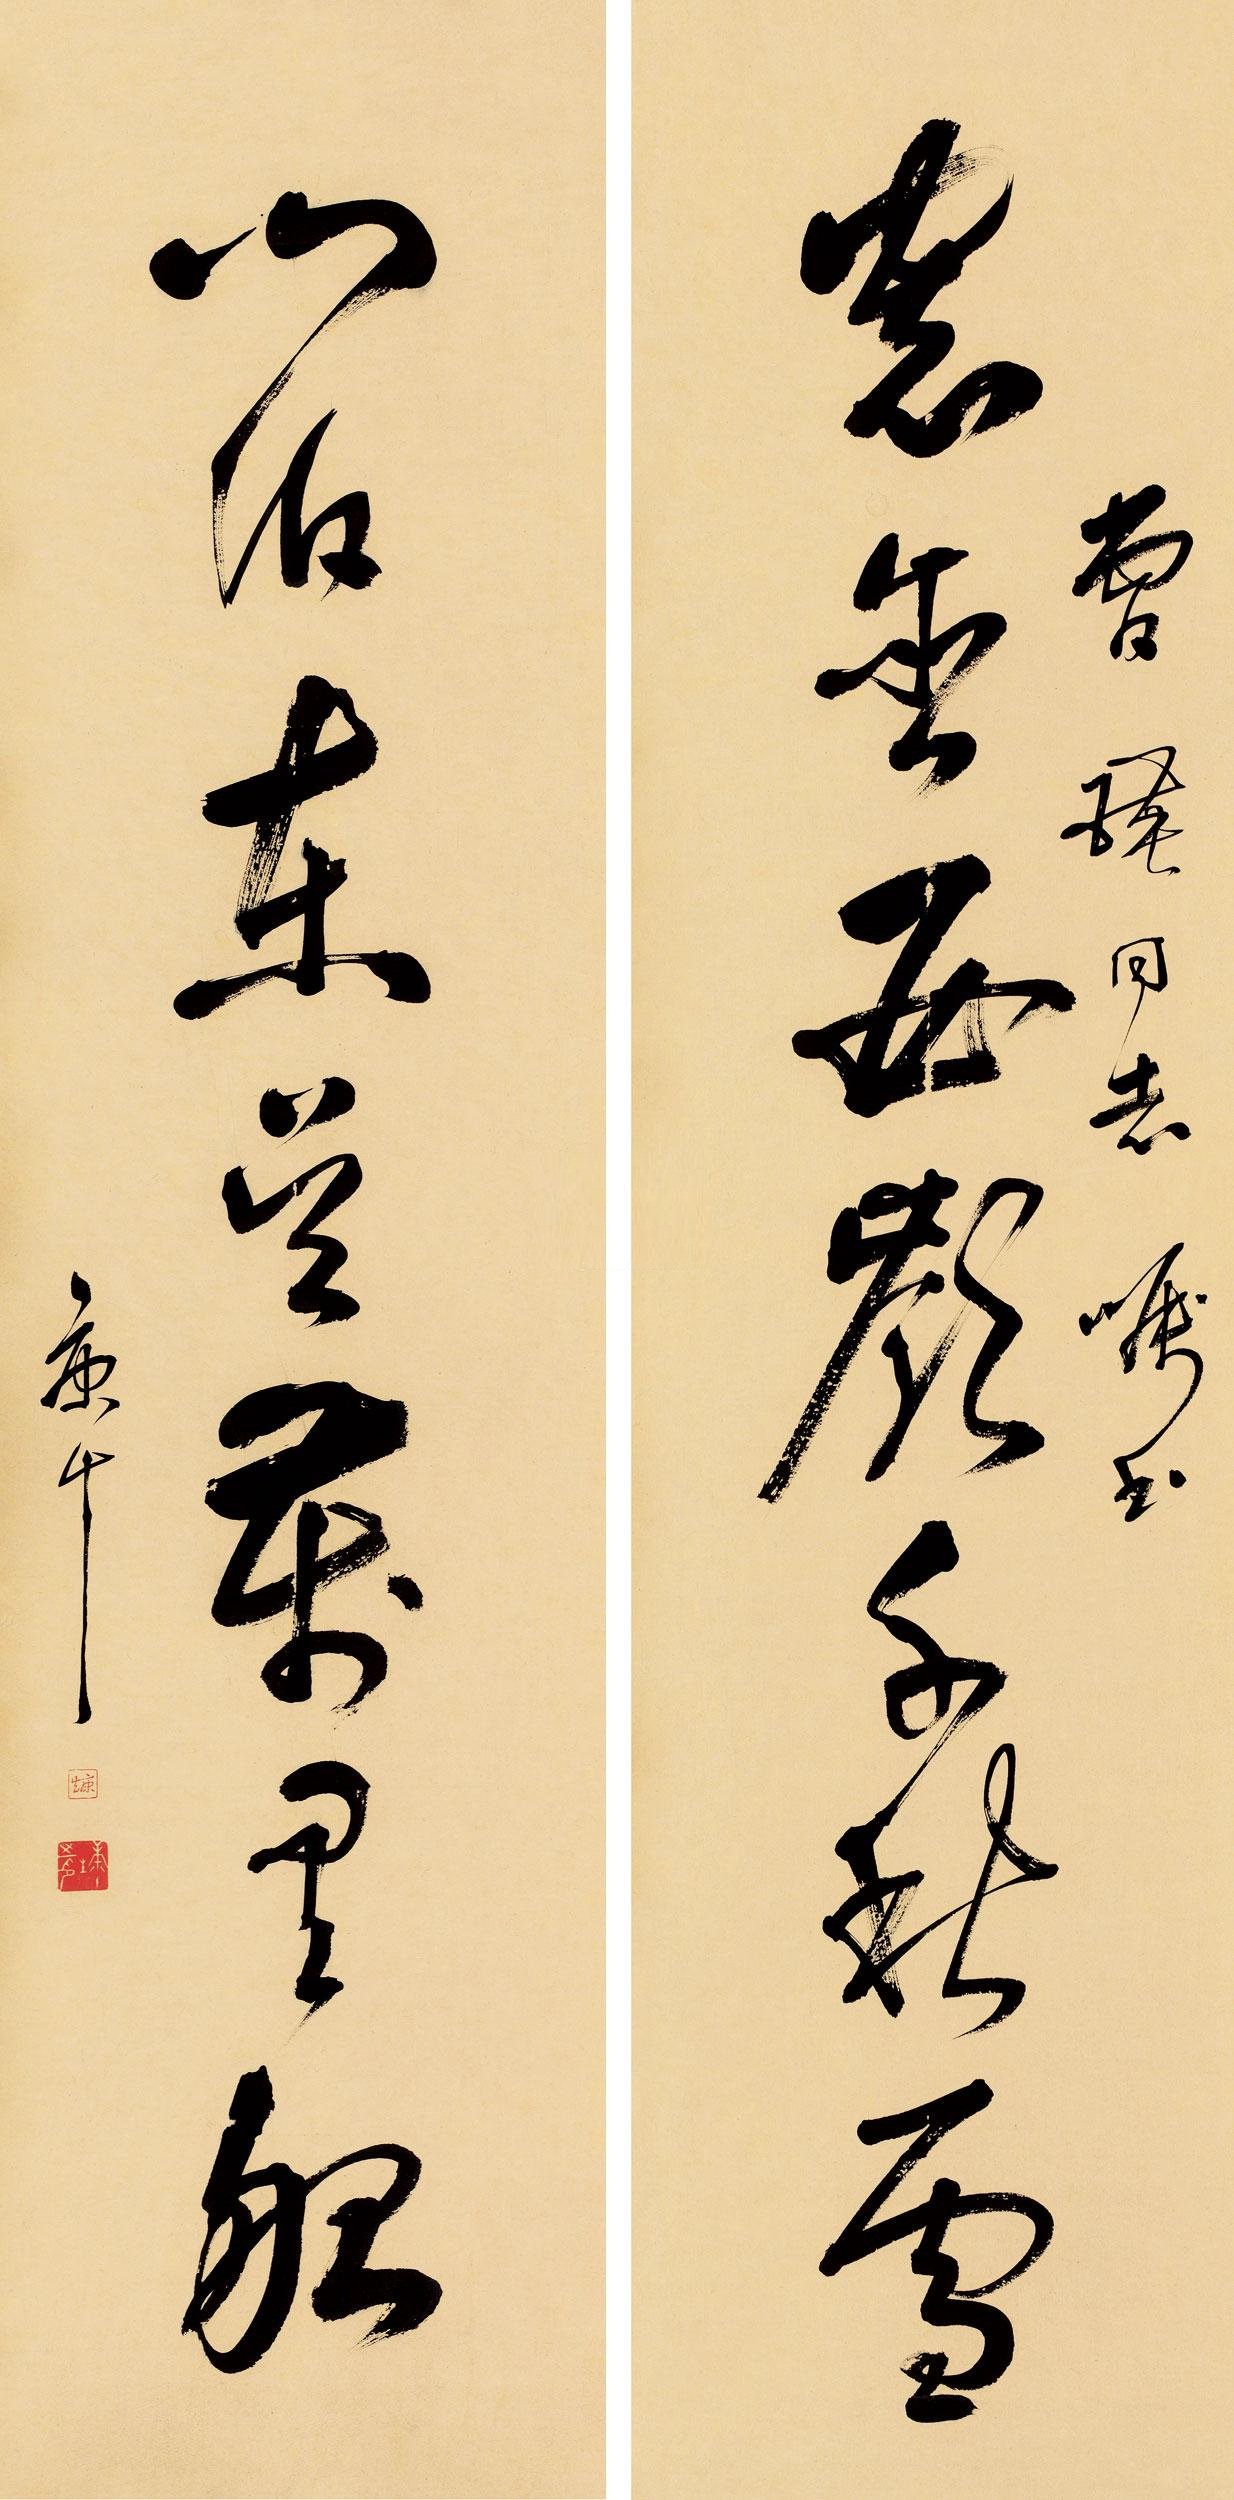 窗含西岭千秋雪
曹
同志
嘱书
门泊东吴万里船
康午